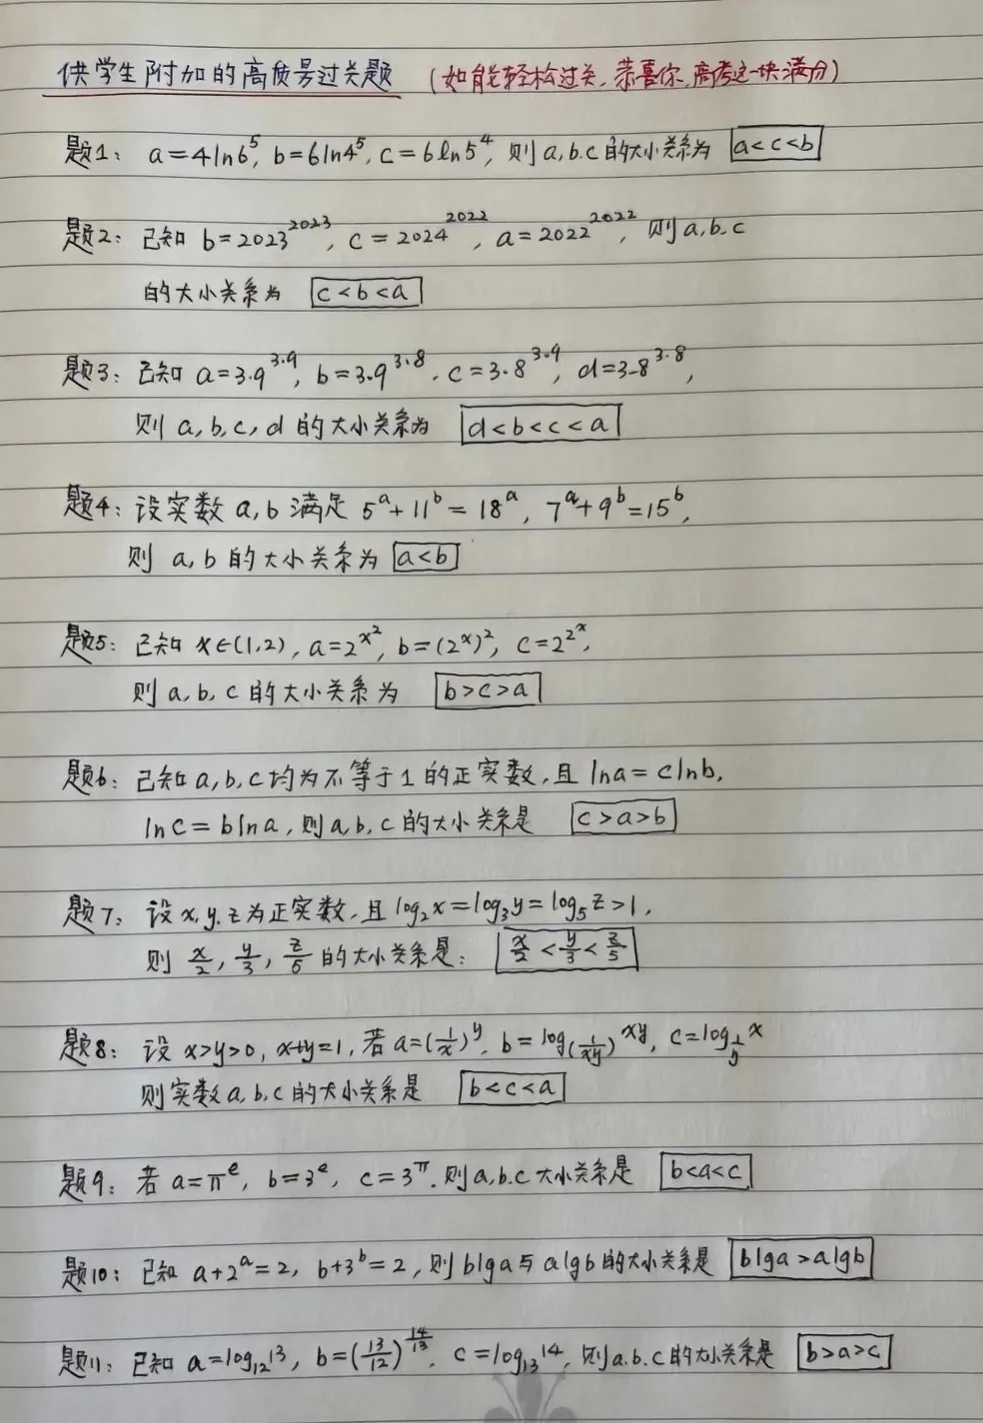 供学生附加的高质量过关题 (如能轻松过关,恭喜你,高考这一块满分)
题1: a=4ln6⁵, b=6ln4⁵, c=6ln5⁴, 则a,b.c的大小关系为 a<c<b
题2: 已知 b=2023²⁰²³, c=2024²⁰²², a=2022²⁰²², 则a,b,c
的大小关系为 c<b<a
题3: 已知 a=3.9^3.9, b=3.9^3.8, c=3.8^3.9, d=3.8^3.8,
则 a,b,c,d 的大小关系为 d<b<c<a
题4: 设实数 a,b 满足 5^a+11^b=18^a, 7^a+9^b=15^b,
则 a,b 的大小关系为 a<b
题5: 已知 x∈(1,2), a=2^x², b=(2^x)², c=2^2^x,
则 a,b,c 的大小关系为 b>c>a
题6: 已知a,b,c均为不等于1的正实数,且 lna=clnb,
lnc=blna,则a,b,c的大小关系是 c>a>b
题7, 设x,y.z为正实数,且log₂x=log₃y=log₅z>1,
则 x/2, y/3, z/5 的大小关系是: x/2<y/3<z/5
题8: 设 x>y>0, x+y=1, 若a=(1/x)^y, b=log_(1/xy) xy, c=log_1/y x
则实数a,b,c的大小关系是 b<c<a
题9: 若 a=π^e, b=3^e, c=3^π.则a,b.c大小关系是 b<a<c
题10: 已知 a+2^a=2, b+3^b=2,则blga与algb的大小关系是 blga>algb
题11: 已知 a=log₁₂13, b=(13/12)^14/13, c=log₁₃14, 则a.b.c的大小关系是 b>a>c